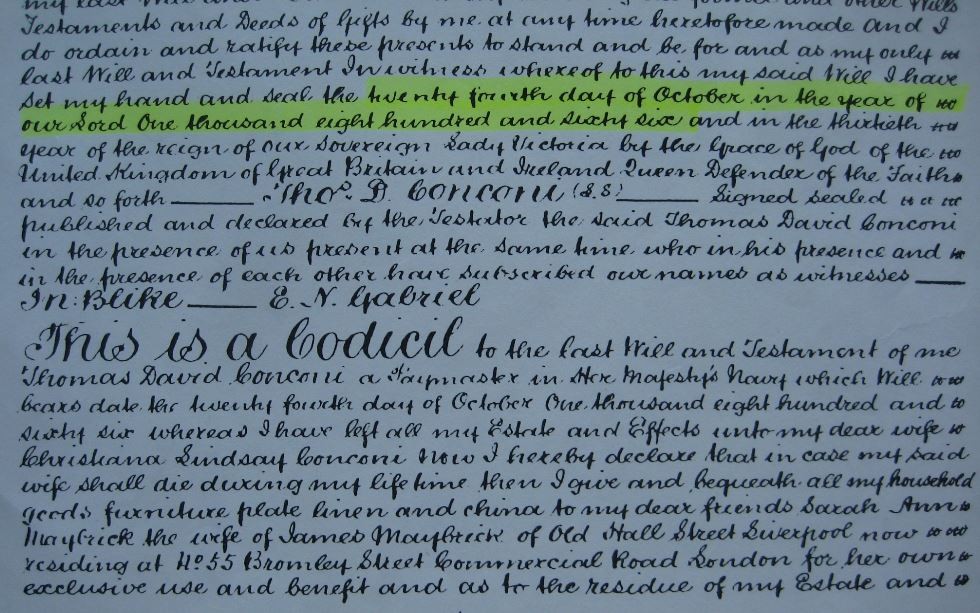 my last Will and Testament and other Wills
Testaments and Deeds of Gifts by me at any time heretofore made and I
do ordain and ratify these presents to stand and be for and as my only
last Will and Testament In witness whereof to this my said Will I have
set my hand and seal the twenty fourth day of October in the year of
our Lord One thousand eight hundred and sixty six and in the thirtieth
year of the reign of our Sovereign Lady Victoria by the Grace of God of the
United Kingdom of Great Britain and Ireland Queen Defender of the Faith
and so forth ——— Thos. D. Conconi (L.S.) ——— Signed sealed
published and declared by the Testator the said Thomas David Conconi
in the presence of us present at the same time who in his presence and
in the presence of each other have subscribed our names as witnesses ——
In: Blike ——— E. N. Gabriel
This is a Codicil to the last Will and Testament of me
Thomas David Conconi a Paymaster in Her Majesty's Navy which Will
bears date the twenty fourth day of October One thousand eight hundred and
sixty six whereas I have left all my Estate and Effects unto my dear wife
Christiana Lindsay Conconi Now I hereby declare that in case my said
wife shall die during my lifetime then I give and bequeath all my household
goods furniture plate linen and china to my dear friends Sarah Ann
Maybrick the wife of James Maybrick of Old Hall Street Liverpool now
residing at No. 55 Bromley Street Commercial Road London for her own
exclusive use and benefit and as to the residue of my Estate and